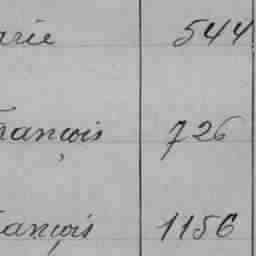 arie 544
François 726
ançois 1156